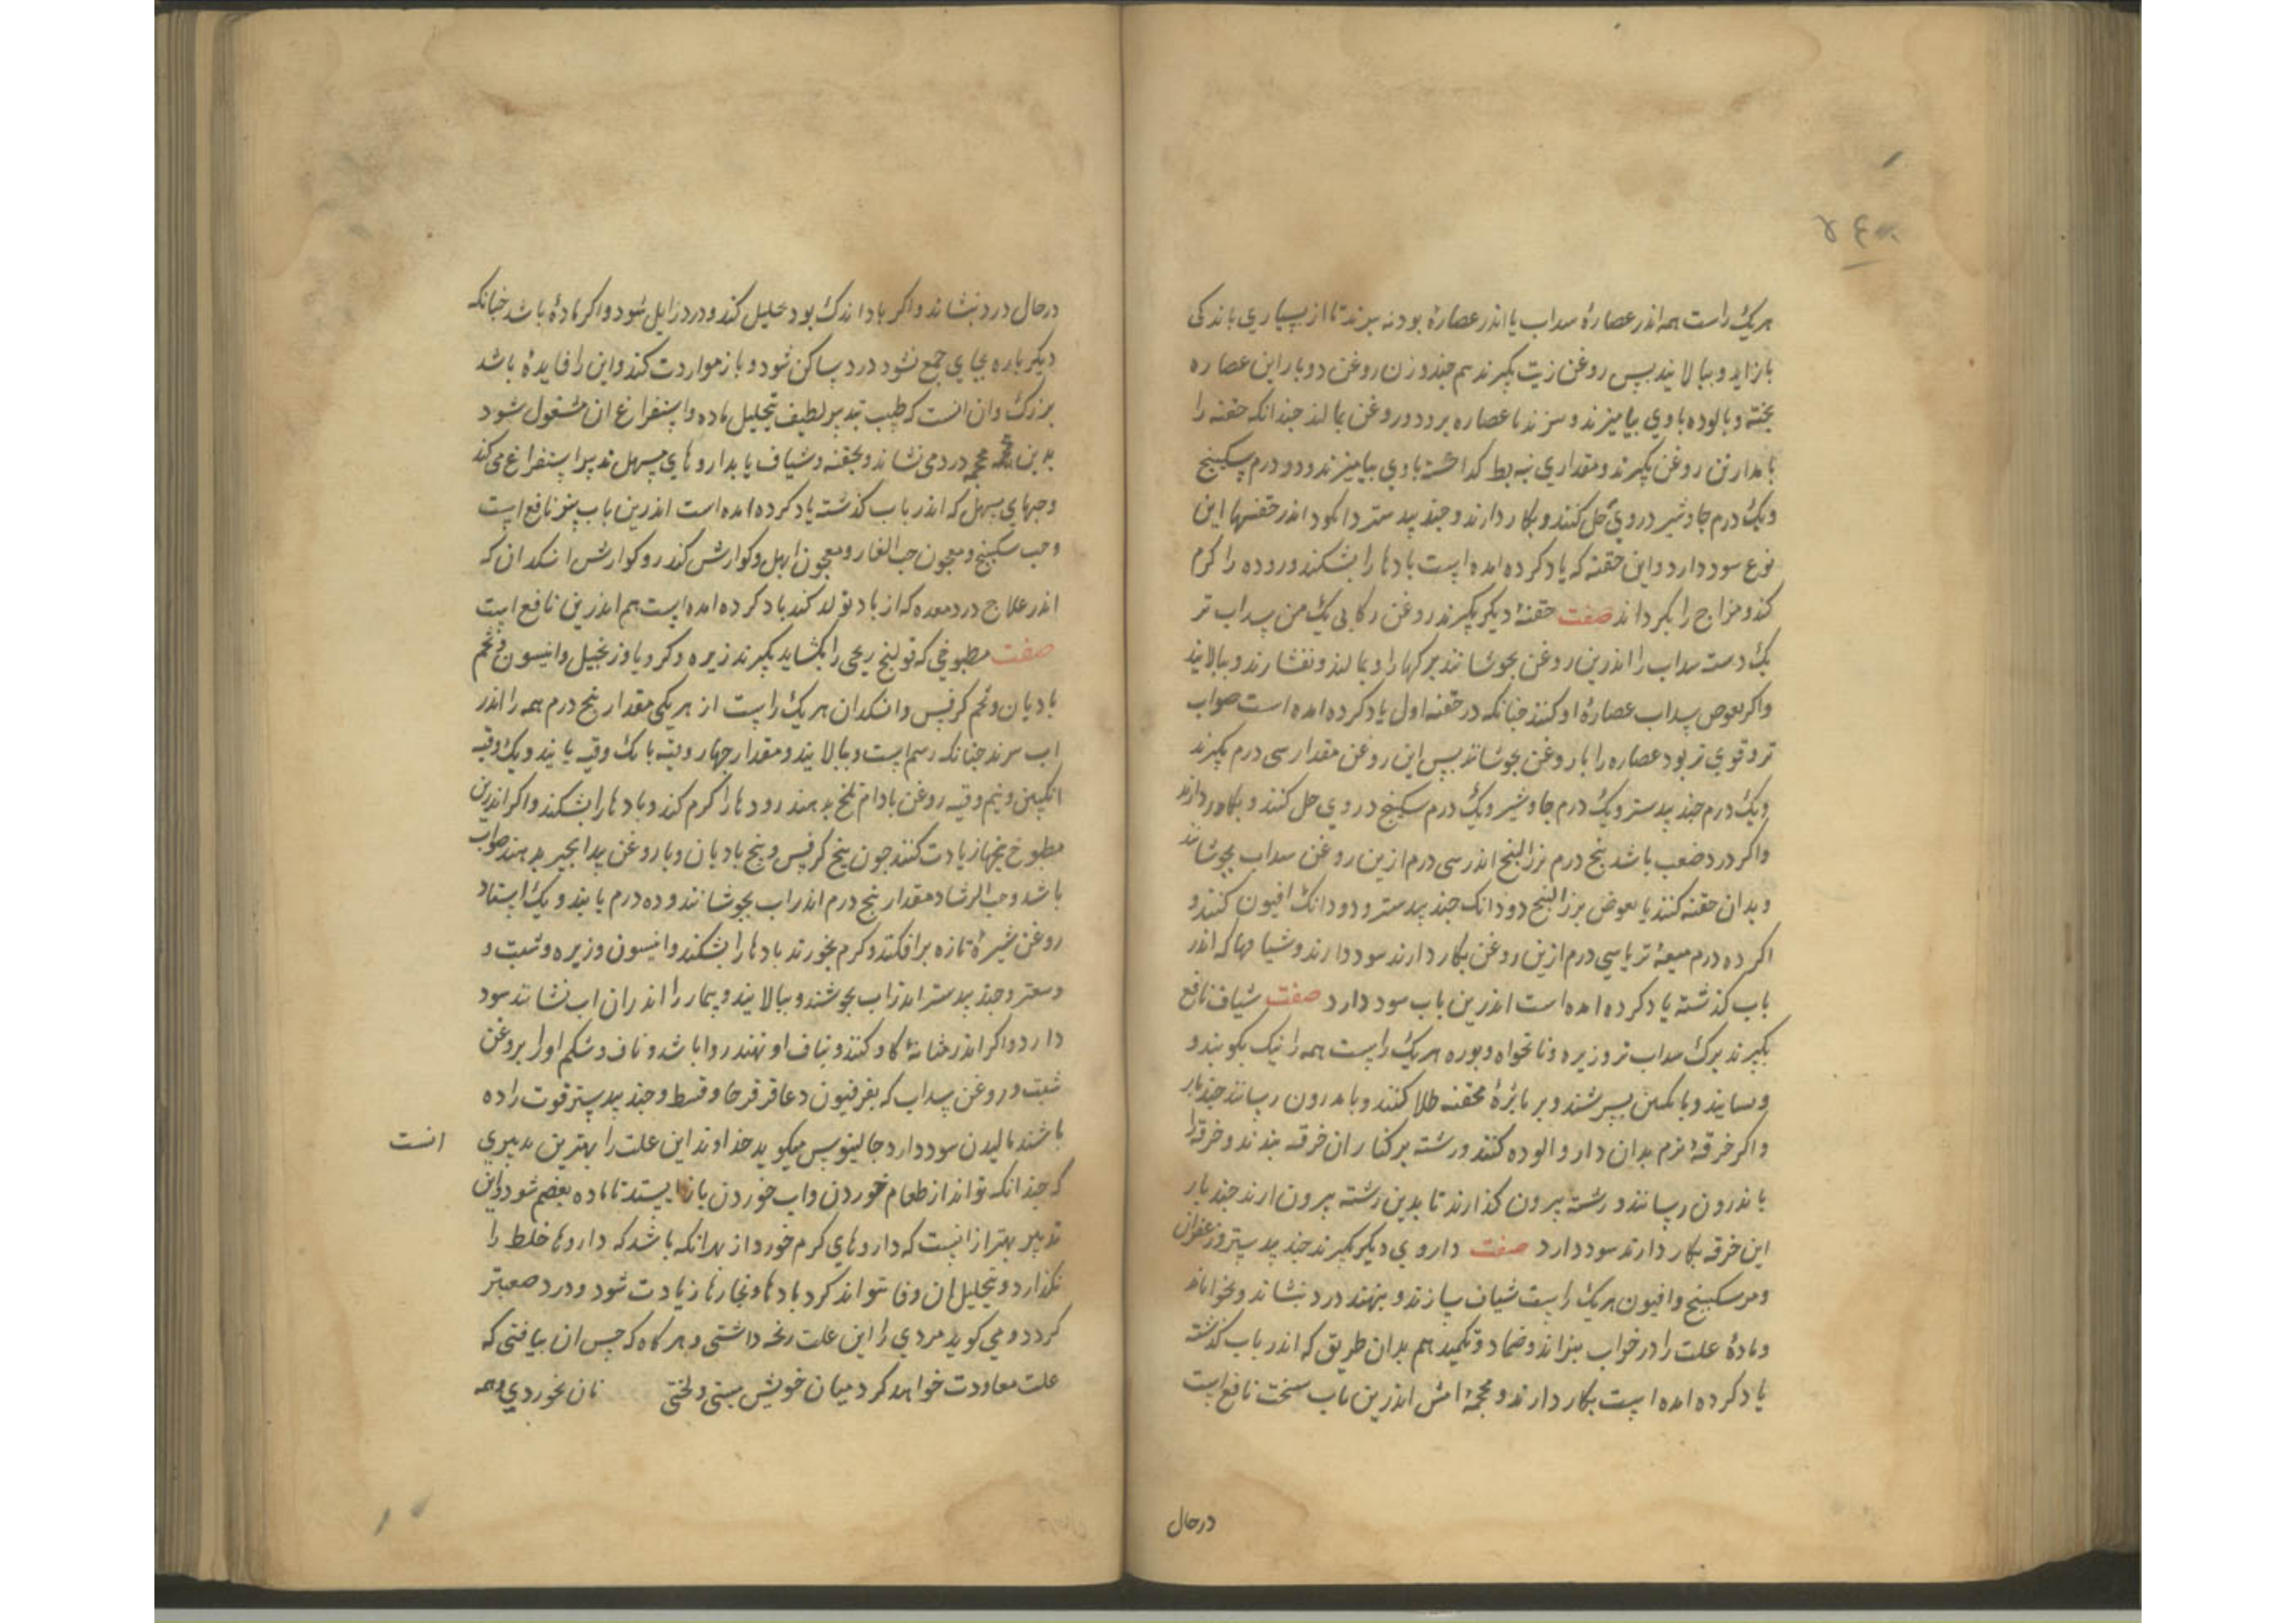 هر یک راست همه اندر عصارهٔ سداب یا اندر عصارهٔ بودنه بپزند تا از بسیاری باندکی
باز اید و ببالایند بس روغن زیت بکیرند هم جند وزن روغن دو بار این عصاره
بخته و بالوده با وی بیامیزند و بپزند تا عصاره برود و روغن بماند جندانکه حقنه را
روغن بکیرند و مقداری بیه بط کداخته با وی بیامیزند و دو درم سکبینج
و یک درم جاوشیر در وی حل کنند و بکار دارند و جند بیدستر اندر حقنها این
نوع سود دارد و این حقنه که یاد کرده امده است بادها را بشکند و روده را کرم
کند و مزاج را بکرداند صفت حقنهٔ دیکر بکیرند روغن رکابی یک من سداب تر
یک دسته سداب را اندرین روغن بجوشانند و بمالند و بفشارند و ببالایند
و اکر بعوض سداب عصارهٔ او کنند جنانکه در حقنه اول یاد کرده امده است صواب
تر و قوی تر بود عصاره را با روغن بجوشانند بس این روغن مقدار سی درم بکیرند
و یک درم جند بیدستر و یک درم جاوشیر و یک درم سکبینج در وی حل کنند و بکار دارند
و اکر درد صعب باشد بنج درم بزر البنج اندر سی درم ازین روغن سداب بجوشانند
و بدان حقنه کنند یا بعوض بزر البنج دو دانک جند بیدستر و دو دانک افیون کنند و
اکر ده درم میعهٔ تر با سی درم ازین روغن بکار دارند سود دارند و شیافها که اندر
باب کذشته یاد کرده امده است اندرین باب سود دارد صفت شیاف نافع
بکیرند برک سداب تر و زیره و نانخواه و بوره هر یک راست همه را نیک بکوبند و
و بسایند و بانکبین بسرشند و بر نایژهٔ محقنه طلا کنند و باندرون رسانند جند بار
و اکر خرقهٔ نرم بدان دارو الوده کنند و رشته بر کنار ان خرقه بندند و خرقه را
باندرون رسانند و رشته بیرون کذارند تا بدین رشته بیرون ارند جند بار
این خرقه بکار دارند سود دارد صفت داروی دیکر بکیرند جند بیدستر و زعفران
و مر و سکبینج و افیون هر یک راست شیاف سازند و بنهند درد بنشاند و بخواباند
و مادهٔ علت را در خواب بپزاند و ضماد و تکمید هم بدان طریق که اندر باب کذشته
یاد کرده امده است بکار دارند و محجمهٔ اتش اندرین باب سخت نافع است
درحال
درحال درد بنشاند و اکر باد اندک بود تحلیل کند و درد زایل شود و اکر مادهٔ باشد جنانکه
دیکر باره بجای جمع شود درد ساکن شود و باز معاودت کند و این را فایدهٔ باشد
بزرک و ان انست که طبیب تدبیر لطیف بتحلیل ماده و استفراغ ان مشغول شود
بدین محجمه درد می نشاند و بحقنه و شیاف یا بداروهای مسهل تدبیر استفراغ می کند
و حبهای مسهل که اندر باب کذشته یاد کرده امده است اندرین باب نیز نافع است
و حب سکبینج و معجون حب الغار و معجون ابهل و کوارش کندر و کوارش انکدان که
اندر علاج درد معده که از باد تولد کند یاد کرده امده است هم اندرین نافع است
صفت مطبوخی که قولنج ریحی را بکشاید بکیرند زیره و کرویا و زنجبیل و انیسون و تخم
بادیان و تخم کرفس و انکدان هر یک راست از هر یکی مقدار بنج درم همه را اندر
اب بپزند جنانکه رسم است و ببالایند و مقدار جهار وقیه با یک وقیه
انکبین و نیم وقیه روغن بادام تلخ بدهند رودها را کرم کند و بادها را بشکند و اکر اندرین
مطبوخ بیخها زیادت کنند جون بیخ کرفس و بیخ بادیان و با روغن بیدانجیر بدهند صواب
باشد و حب الرشاد مقدار بنج درم اندر اب بجوشانند و ده درم و یک استاد
روغن شیرهٔ تازه برافکنند و کرم بخورند بادها را بشکند و انیسون و زیره و شبت و
و سعتر و جند بیدستر اندر اب بجوشند و ببالایند و بیمار را اندران اب نشانند سود
دارد و اکر اندر مثانهٔ کاو کنند و بناف او نهند روا باشد و ناف و شکم او را بروغن
شبت و روغن سداب که بفرفیون و عاقرقرحا و قسط و جند بیدستر قوت داده
باشند مالیدن سود دارد جالینوس میکوید خداوند این علت را بهترین تدبیری انست
که جندانکه تواند از طعام خوردن و اب خوردن باز ایستد تا ماده هضم شود و این
تدبیر بهتر از انست که داروهای کرم خورد از بهر انکه باشد که داروها خلط را
بکذارد و بتحلیل ان وفا نتواند کرد بادها و بخارها زیادت شود و درد صعبتر
کردد و می کوید مردی را این علت رنجه داشتی و هر کاه که حس ان بیافتی که
علت معاودت خواهد کرد میان خویش ببستی و لختی نان بخوردی و همه